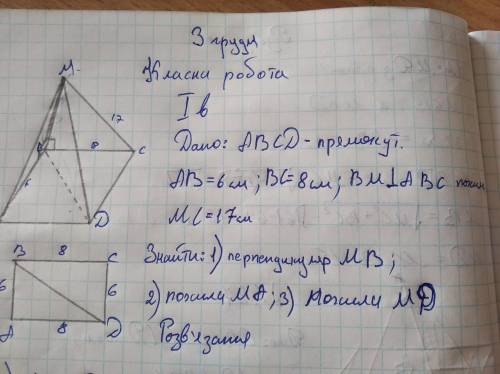 3 грудн
Класна робота
I в
Дано: ABCD - прямокут.
AB = 6 см; BC = 8 см; BM ⊥ ABC
MC = 17 см
Знайти: 1) перпендикуляр MB;
2) похили MA; 3) похили MD
Розв'язання
M
17
8
C
6
D
B 8 C
6 6
A 8 D